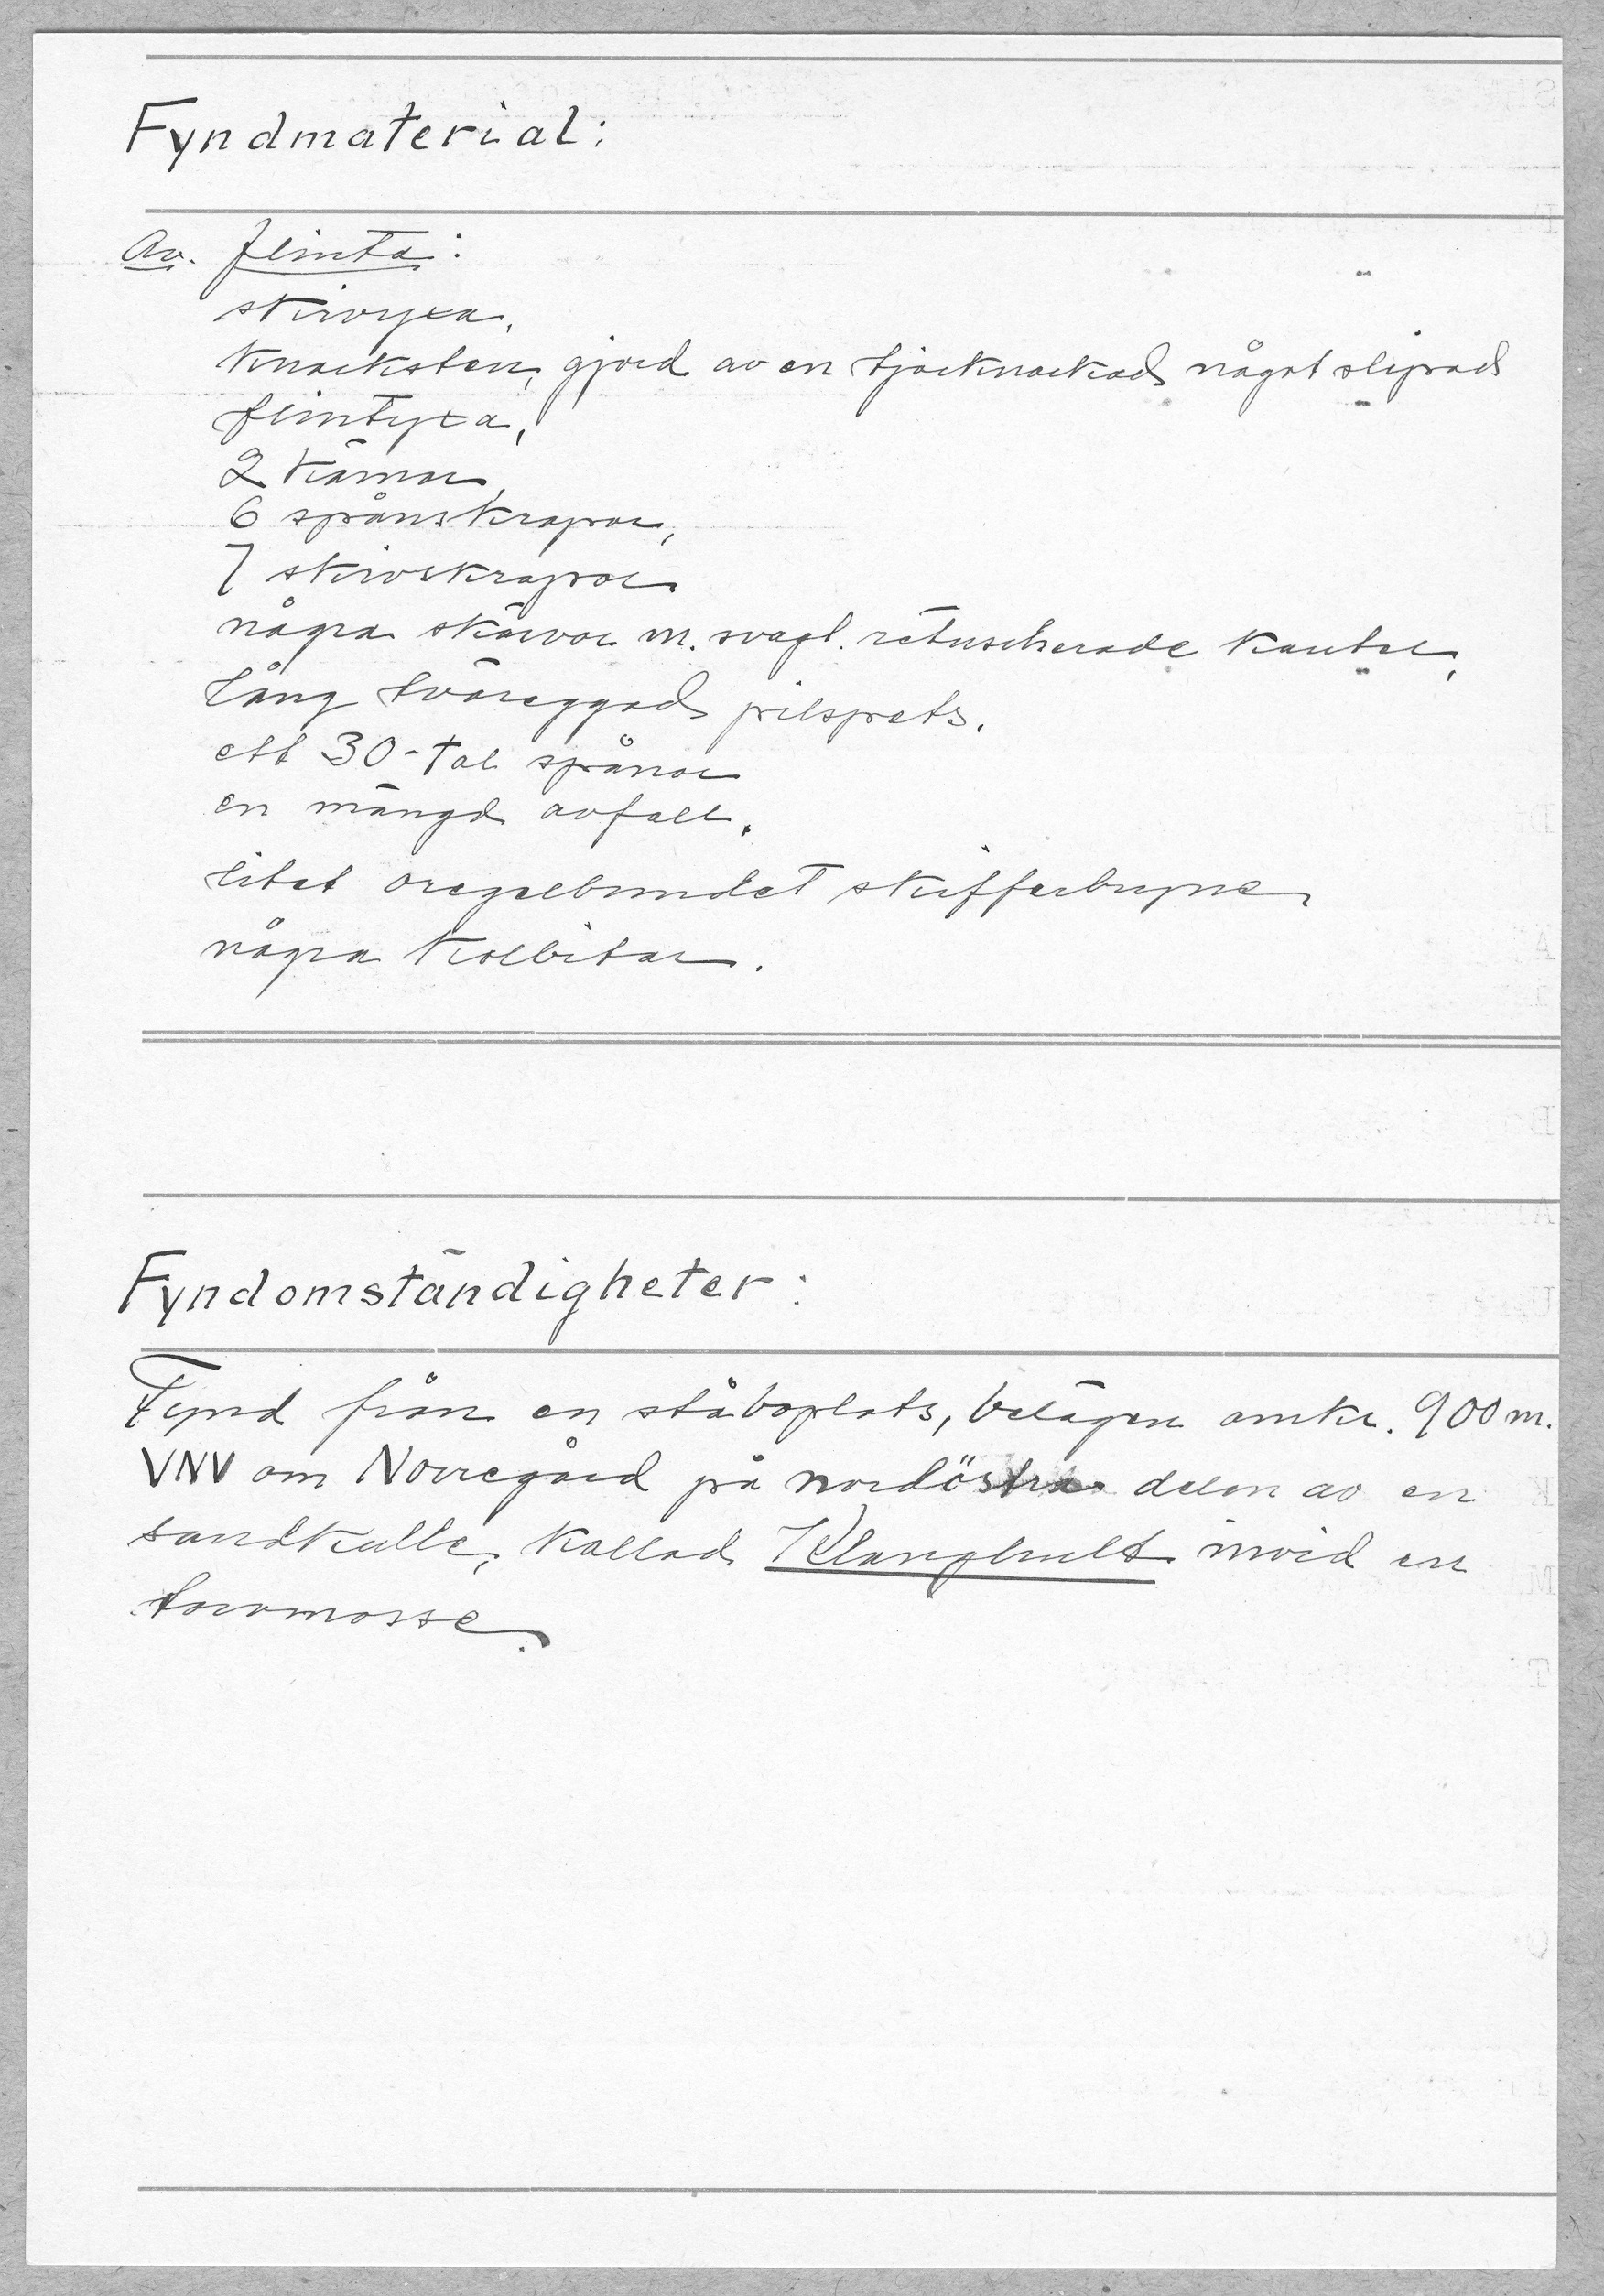 Fyndmaterial:
Av. flinta:
skivyxa,
knacksten, gjord av en tjocknackad något slipad
flintyxa,
2 kärnor,
6 spånskrapor,
7 skivskrapor
några skärvor m. svagt. retuscherade kanter,
lång tväreggad pilspets.
ett 30-tal spånor
en mängd avfall.
litet oregelbundet skifferbryne
några kolbitar.
Fyndomständigheter:
Fynd från en stå boplats, belägen omkr. 900 m.
VNV om Norregård på nordöstra delen av en
sandkulle, kallad Klanghult invid en
torvmosse.